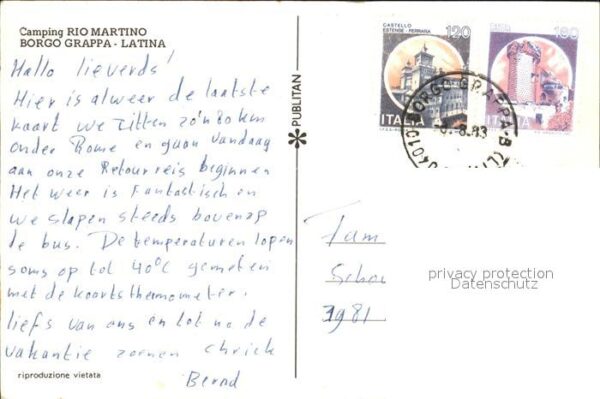 Camping RIO MARTINO
BORGO GRAPPA - LATINA
Hallo lieverds!
Hier is alweer de laatste
kaart we zitten zo'n 80 km
onder Rome en gaan vandaag
aan onze Retourreis beginnen
Het weer is Fantastisch en
we slapen steeds bovenop
de bus. De temperaturen lopen
soms op tot 40°C gemeten
met de koortsthermometer.
liefs van ons en tot na de
vakantie zoenen
Bernd
riproduzione vietata
PUBLITAN
CASTELLO
ESTENSE - FERRARA
120
ITALIA
180
ITALIA
04010 BORGO GRAPPA-B
8.83
Fam
1981
privacy protection
Datenschutz